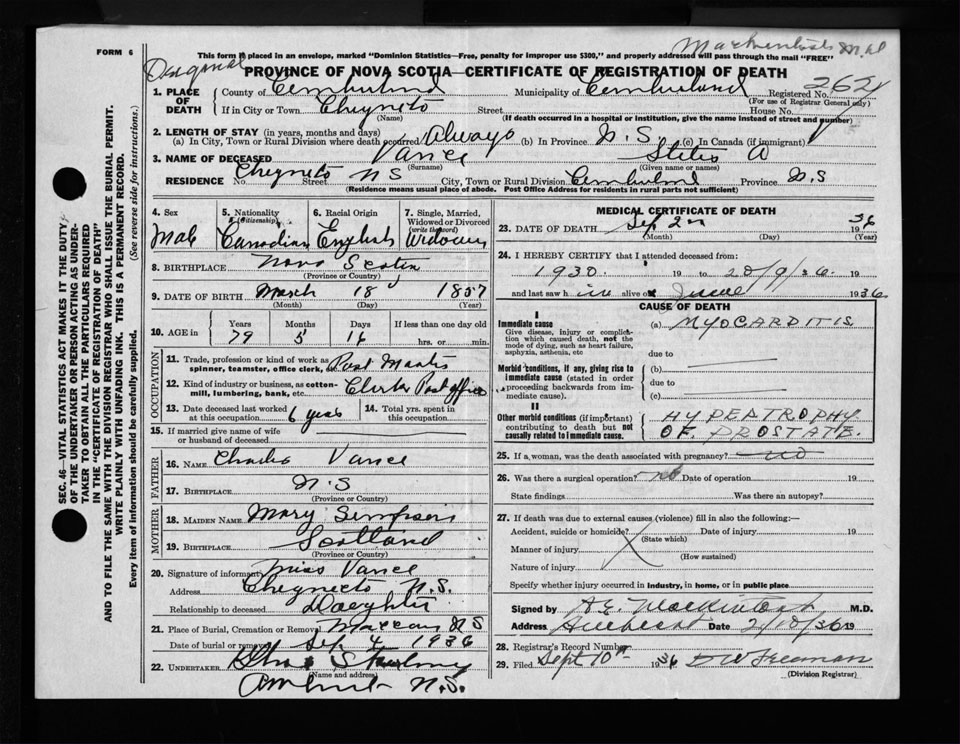 FORM 6
This form if placed in an envelope, marked "Dominion Statistics—Free, penalty for improper use $300," and properly addressed will pass through the mail "FREE"
PROVINCE OF NOVA SCOTIA—CERTIFICATE OF REGISTRATION OF DEATH
1. PLACE OF DEATH County of Cumberland Municipality of Cumberland Registered No. 2624
(For use of Registrar General only)
If in City or Town Chegnecto Street House No.
(Name) (If death occurred in a hospital or institution, give the name instead of street and number)
2. LENGTH OF STAY (in years, months and days)
(a) In City, Town or Rural Division where death occurred Always (b) In Province N.S. (c) In Canada (if immigrant)
3. NAME OF DECEASED Vance A
(Surname) (Given name or names)
RESIDENCE No. Chegnecto Street NS City, Town or Rural Division Cumberland Province N.S
(Residence means usual place of abode. Post Office Address for residents in rural parts not sufficient)
SEC. 46—VITAL STATISTICS ACT MAKES IT THE DUTY
OF THE UNDERTAKER OR PERSON ACTING AS UNDER-
TAKER TO OBTAIN ALL THE PARTICULARS REQUIRED
IN THE "CERTIFICATE OF REGISTRATION OF DEATH"
AND TO FILE THE SAME WITH THE DIVISION REGISTRAR WHO SHALL ISSUE THE BURIAL PERMIT.
WRITE PLAINLY WITH UNFADING INK. THIS IS A PERMANENT RECORD.
Every item of information should be carefully supplied. (See reverse side for instructions.)
4. Sex 5. Nationality (Citizenship) 6. Racial Origin 7. Single, Married, Widowed or Divorced (write the word)
Male Canadian English Widower
8. BIRTHPLACE Nova Scotia
(Province or Country)
9. DATE OF BIRTH March 18 1857
(Month) (Day) (Year)
10. AGE in Years Months Days If less than one day old
79 5 16 hrs. or min.
OCCUPATION
11. Trade, profession or kind of work as spinner, teamster, office clerk, etc. Post Master
12. Kind of industry or business, as cotton-mill, lumbering, bank, etc. Clerk Post office
13. Date deceased last worked at this occupation. 6 years 14. Total yrs. spent in this occupation
15. If married give name of wife or husband of deceased
FATHER
16. NAME Charles Vance
17. BIRTHPLACE N.S
(Province or Country)
MOTHER
18. MAIDEN NAME Mary Simpson
19. BIRTHPLACE Scotland
(Province or Country)
20. Signature of informant Miss Vance
Address Chegnecto N.S.
Relationship to deceased Daughter
21. Place of Burial, Cremation or Removal Maccan NS
Date of burial or removal Sep 4 1936
22. UNDERTAKER
(Name and address)
Amherst N.S.
MEDICAL CERTIFICATE OF DEATH
23. DATE OF DEATH Sep 2nd 1936
(Month) (Day) (Year)
24. I HEREBY CERTIFY that I attended deceased from:
1930. 19 to 19
and last saw h alive on 1936
CAUSE OF DEATH
I
Immediate cause (a) MYOCARDITIS
Give disease, injury or complication which caused death, not the mode of dying, such as heart failure, asphyxia, asthenia, etc
due to
Morbid conditions, if any, giving rise to immediate cause (stated in order proceeding backwards from immediate cause). (b)
due to
(c)
II
Other morbid conditions (if important) contributing to death but not causally related to immediate cause.
HYPERTROPHY
OF PROSTATE
25. If a woman, was the death associated with pregnancy? no
26. Was there a surgical operation? no Date of operation 19
State findings Was there an autopsy?
27. If death was due to external causes (violence) fill in also the following:—
Accident, suicide or homicide? Date of injury 19
(State which)
Manner of injury
(How sustained)
Nature of injury
Specify whether injury occurred in industry, in home, or in public place
Signed by A.E. Mackintosh M.D.
Address Amherst Date 2/10/36 19
28. Registrar's Record Number
29. Filed Sept 10th 1936 D W Freeman
(Division Registrar)